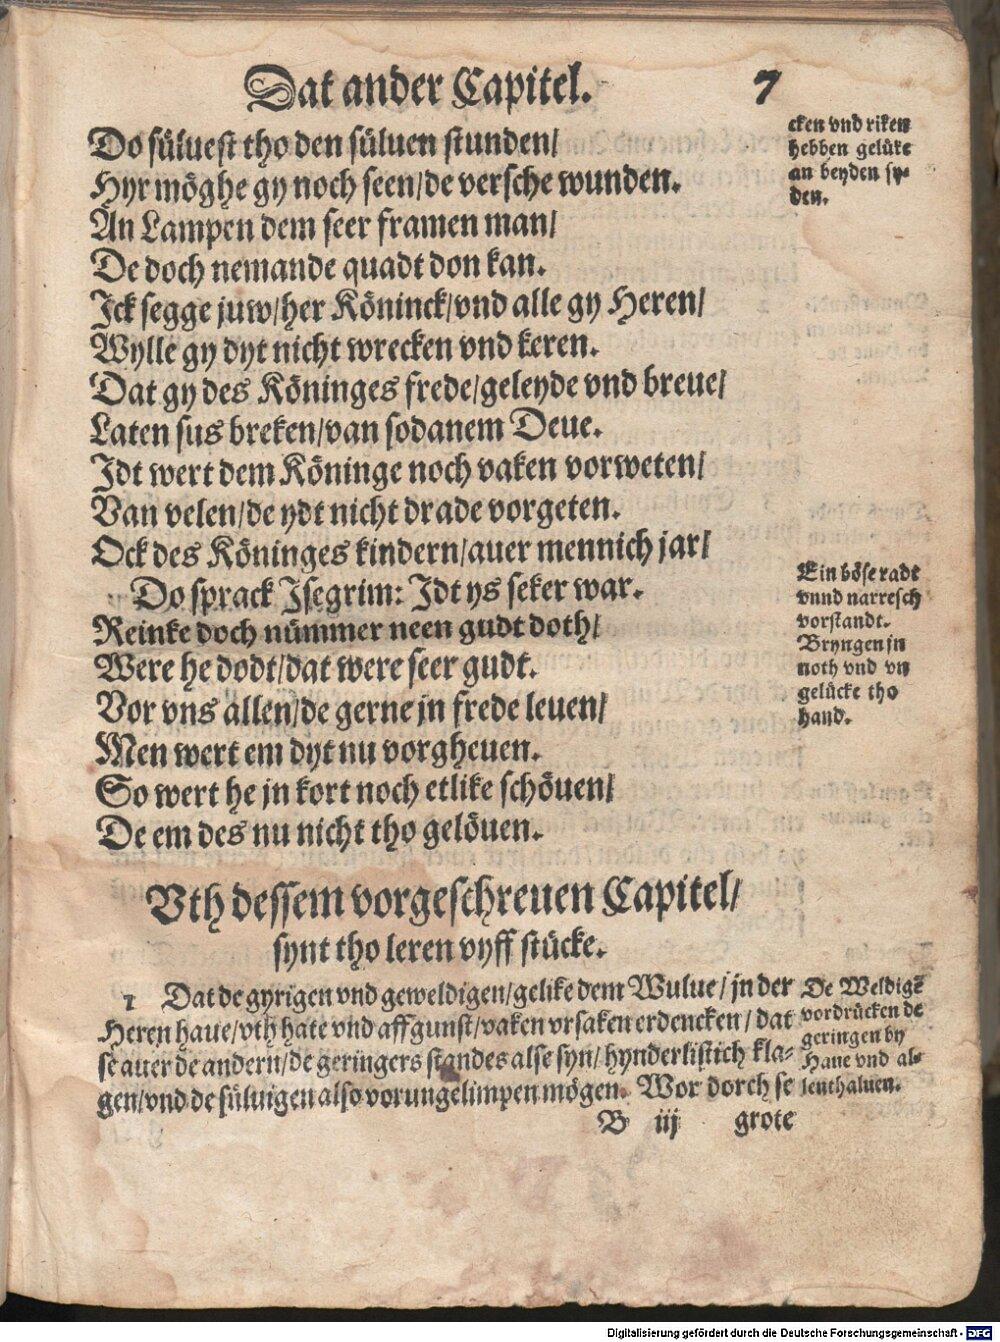 Dat ander Capitel. 7
Do süluest tho den süluen stunden/
Hyr möghe gy noch seen/de versche wunden.
An Lampen dem seer framen man/
De doch nemande quadt don kan.
Ick segge juw/her Köninck/vnd alle gy Heren/
Wylle gy dyt nicht wrecken vnd keren.
Dat gy des Köninges frede/geleyde vnd breue/
Laten sus breken/van sodanem Deue.
Idt wert dem Köninge noch vaken vorweten/
Van velen/de ydt nicht drade vorgeten.
Ock des Köninges kindern/auer mennich jar/
Do sprack Isegrim: Idt ys seker war.
Reinke doch nümmer neen gudt doth/
Were he dodt/dat were seer gudt.
Vor vns allen/de gerne jn frede leuen/
Men wert em dyt nu vorgheuen.
So wert he jn kort noch etlike schöuen/
De em des nu nicht tho gelöuen.
cken vnd riken
hebben gelüke
an beyden sy-
den.
Ein böse radt
vnnd narresch
vorstandt.
Bryngen jn
noth vnd vn
gelücke tho
hand.
Vth dessem vorgeschreuen Capitel/
synt tho leren vyff stücke.
1 Dat de gyrigen vnd geweldigen/gelike dem Wulue/jn der
Heren haue/vth hate vnd affgunst/vaken vrsaken erdencken/dat
se auer de andern/de geringers standes alse syn/hynderlistich kla-
gen/vnd de süluigen also vorungelimpen mögen. Wor dorch se
De Weldigē
vordrücken de
geringen by
Haue vnd al-
lenthaluen.
B iij grote
Digitalisierung gefördert durch die Deutsche Forschungsgemeinschaft - DFG